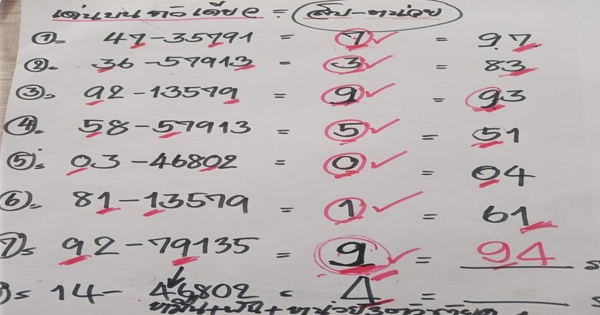 เด่นบน ตัวเดียว = สิบ-หน่วย
①= 47-35791 = 7 ✓ = 97
②= 36-57913 = 3 ✓ = 83
③= 92-13579 = 9 ✓ = 93
④= 58-57913 = 5 ✓ = 51
⑤= 03-46802 = 0 ✓ = 04
⑥= 81-13579 = 1 ✓ = 61
⑦= 92-79135 = 9 = 94
= 14-46802 = 4 =